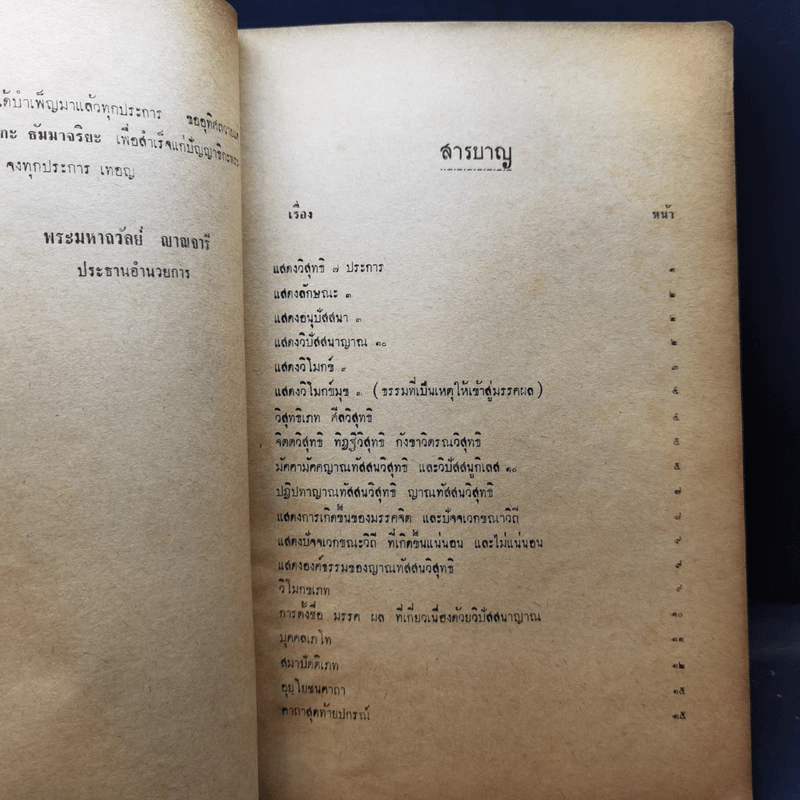 ได้บำเพ็ญมาแล้วทุกประการ
กะ ธัมมาจริยะ เพื่อสำเร็จแก่
จงทุกประการ เทอญ
พระมหาถวัลย์ ญาณจารี
ประธานอำนวยการ
สารบาญ
เรื่อง หน้า
แสดงวิสุทธิ ๗ ประการ ๑
แสดงลักษณะ ๓ ๒
แสดงอนุปัสสนา ๓ ๒
แสดงวิปัสสนาญาณ ๑๐ ๒
แสดงวิโมกข์ ๓ ๓
แสดงวิโมกข์มุข ๓ (ธรรมที่เป็นเหตุให้เข้าสู่มรรคผล) ๔
วิสุทธิเภท ศีลวิสุทธิ ๔
จิตตวิสุทธิ ทิฏฐิวิสุทธิ กังขาวิตรณวิสุทธิ ๕
มัคคามัคคญาณทัสสนวิสุทธิ และวิปัสสนูกิเลส ๑๐ ๕
ปฏิปทาญาณทัสสนวิสุทธิ ญาณทัสสนวิสุทธิ ๗
แสดงการเกิดขึ้นของมรรคจิต และปัจจเวกขณาวิถี ๘
แสดงปัจจเวกขณะวิถี ที่เกิดขึ้นแน่นอน และไม่แน่นอน ๙
แสดงองค์ธรรมของญาณทัสสนวิสุทธิ ๙
วิโมกขเภท ๙
การตั้งชื่อ มรรค ผล ที่เกี่ยวเนื่องด้วยวิปัสสนาญาณ ๑๐
บุคคลเภโท ๑๑
สมาปัตติเภท ๑๒
อุยฺโยชนคาถา ๑๕
คาถาสุดท้ายปกรณ์ ๑๕